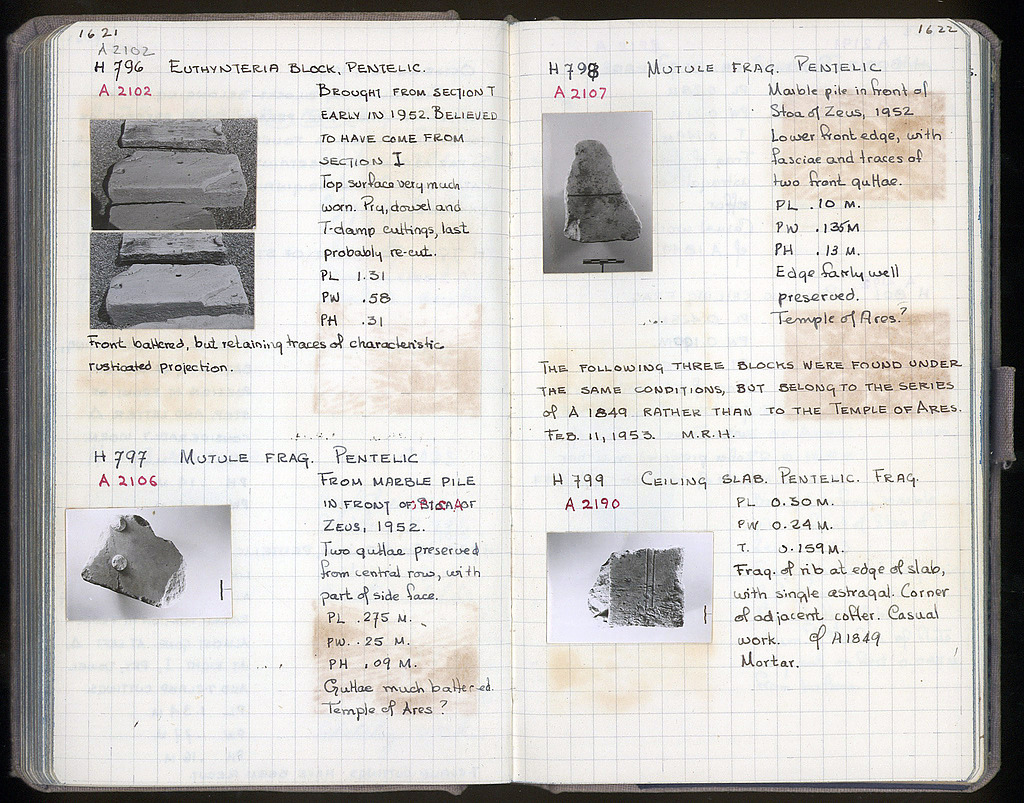 1621
A 2102
H 796 EUTHYNTERIA BLOCK, PENTELIC.
A 2102
BROUGHT FROM SECTION T
EARLY IN 1952. BELIEVED
TO HAVE COME FROM
SECTION I
Top surface very much
worn. Pry, dowel and
T-clamp cuttings, last
probably re-cut.
PL 1.31
PW .58
PH .31
Front battered, but retaining traces of characteristic
rusticated projection.
H 797 MUTULE FRAG. PENTELIC
A 2106
FROM MARBLE PILE
IN FRONT OF STOA OF
ZEUS, 1952.
Two guttae preserved
from central row, with
part of side face.
PL .275 M.
PW. .25 M.
PH .09 M.
Guttae much battered.
Temple of Ares?
1622
H 798 MUTULE FRAG. PENTELIC
A 2107
Marble pile in front of
Stoa of Zeus, 1952
Lower front edge, with
fasciae and traces of
two front guttae.
PL .10 M.
PW .135 M
PH .13 M.
Edge fairly well
preserved.
Temple of Ares?
THE FOLLOWING THREE BLOCKS WERE FOUND UNDER
THE SAME CONDITIONS, BUT BELONG TO THE SERIES
of A 1849 RATHER THAN TO THE TEMPLE OF ARES.
FEB. 11, 1953. M.R.H.
H 799 CEILING SLAB. PENTELIC. FRAG.
A 2190
PL 0.30 M.
PW 0.24 M.
T. 0.159 M.
Frag. of rib at edge of slab,
with single astragal. Corner
of adjacent coffer. Casual
work. cf A 1849
Mortar.